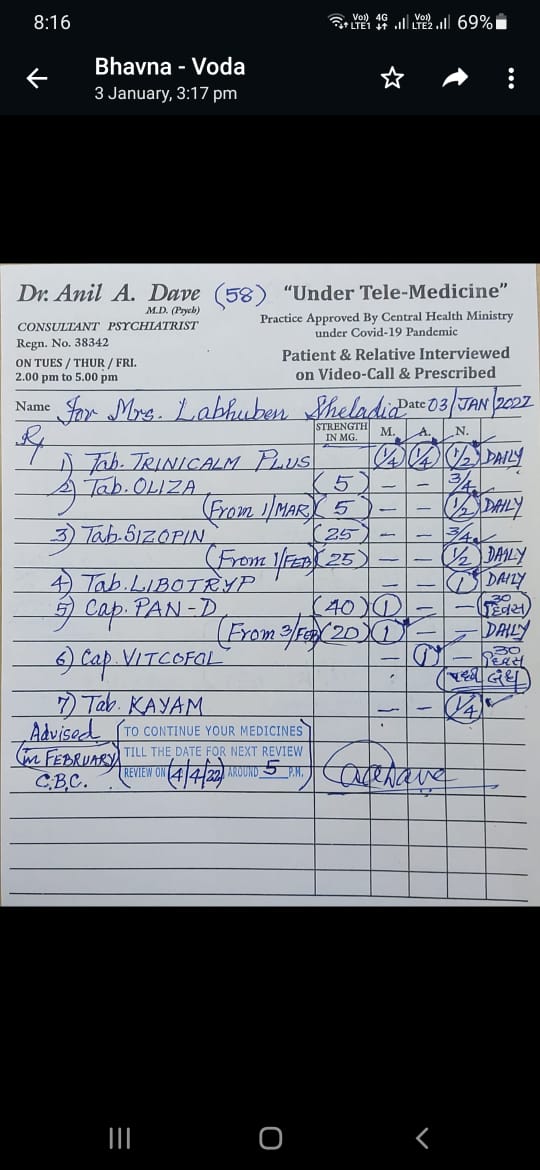 8:16 Vo)) LTE1 4G Vo)) LTE2 69%
Bhavna - Voda
3 January, 3:17 pm
Dr. Anil A. Dave (58) "Under Tele-Medicine"
M.D. (Psych)
CONSULTANT PSYCHIATRIST
Regn. No. 38342
ON TUES / THUR / FRI.
2.00 pm to 5.00 pm
Practice Approved By Central Health Ministry
under Covid-19 Pandemic
Patient & Relative Interviewed
on Video-Call & Prescribed
Name For Mrs. Labhuben Sheladia Date 03/JAN/2022
Rx STRENGTH IN MG. M. A. N.
1) Tab. TRINICALM PLUS 1/4 1/4 1/2 DAILY
2) Tab. OLIZA (5) — — 3/4
(From 1/MAR) (5) — — 1/2 DAILY
3) Tab. SIZOPIN (25) — — 3/4
(From 1/FEB) (25) — — 1/2 DAILY
4) Tab. LIBOTRYP — — 1 DAILY
5) Cap. PAN-D (40) 1 — — 30 દિવસ
(From 3/FEB) (20) 1 — — DAILY
6) Cap. VITCOFOL — 1 — 30 દિવસ
પછી બંધ
7) Tab. KAYAM — — 1/4
Advised in FEBRUARY C.B.C.
TO CONTINUE YOUR MEDICINES
TILL THE DATE FOR NEXT REVIEW
REVIEW ON (4/4/22) AROUND 5 P.M.